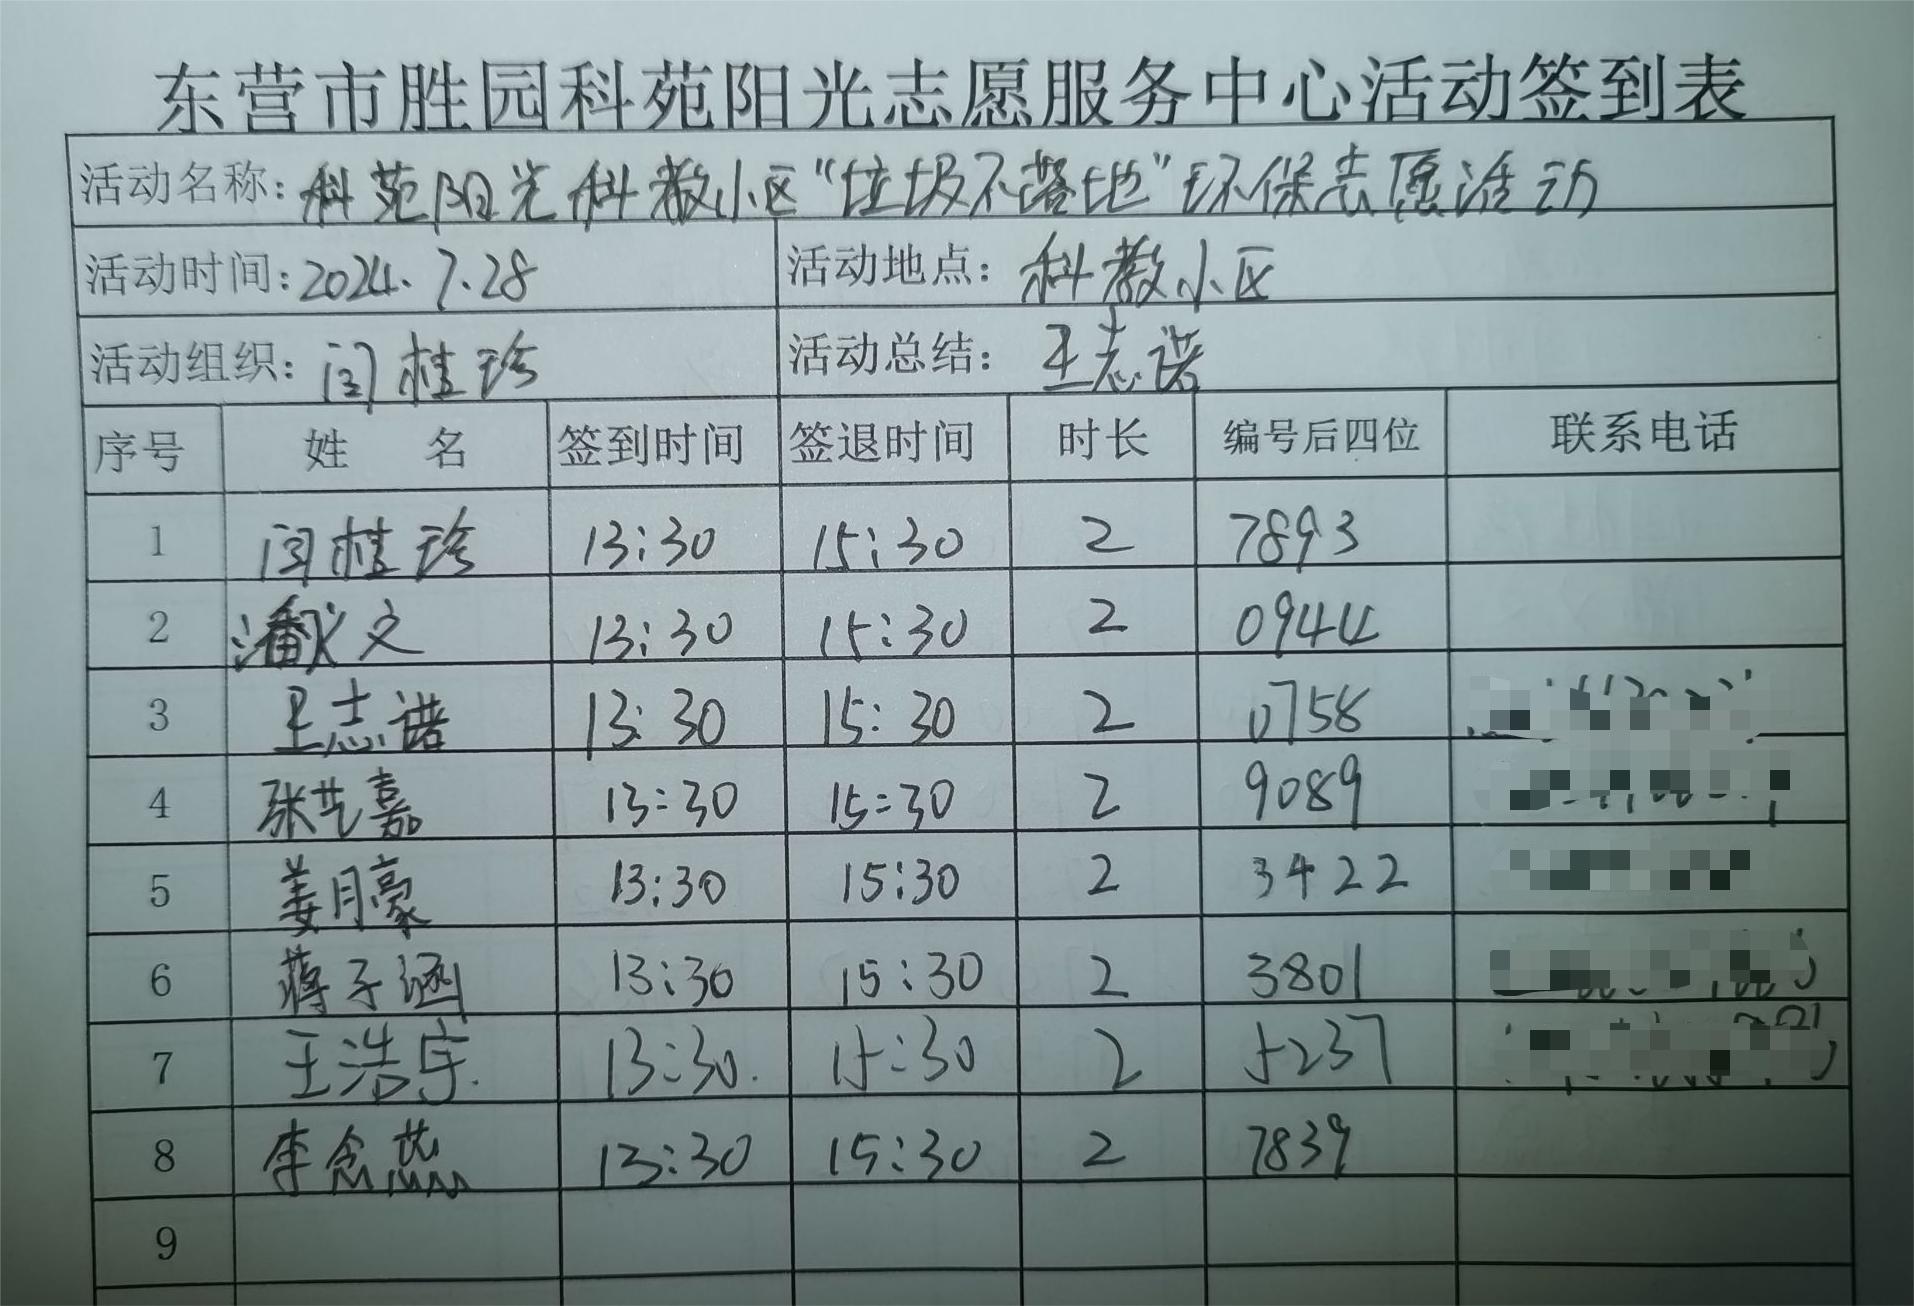 东营市胜园科苑阳光志愿服务中心活动签到表
活动名称：科苑阳光科教小区“垃圾不落地”环保志愿活动
活动时间：2024.7.28 活动地点：科教小区
活动组织：闫桂珍 活动总结：王志诺
序号 姓 名 签到时间 签退时间 时长 编号后四位 联系电话
1 闫桂珍 13:30 15:30 2 7893
2 潘义文 13:30 15:30 2 0944
3 王志诺 13:30 15:30 2 0758
4 张艺嘉 13:30 15:30 2 9089
5 姜月豪 13:30 15:30 2 3422
6 蒋子涵 13:30 15:30 2 3801
7 王浩宇 13:30 15:30 2 5237
8 李念 13:30 15:30 2 7839
9